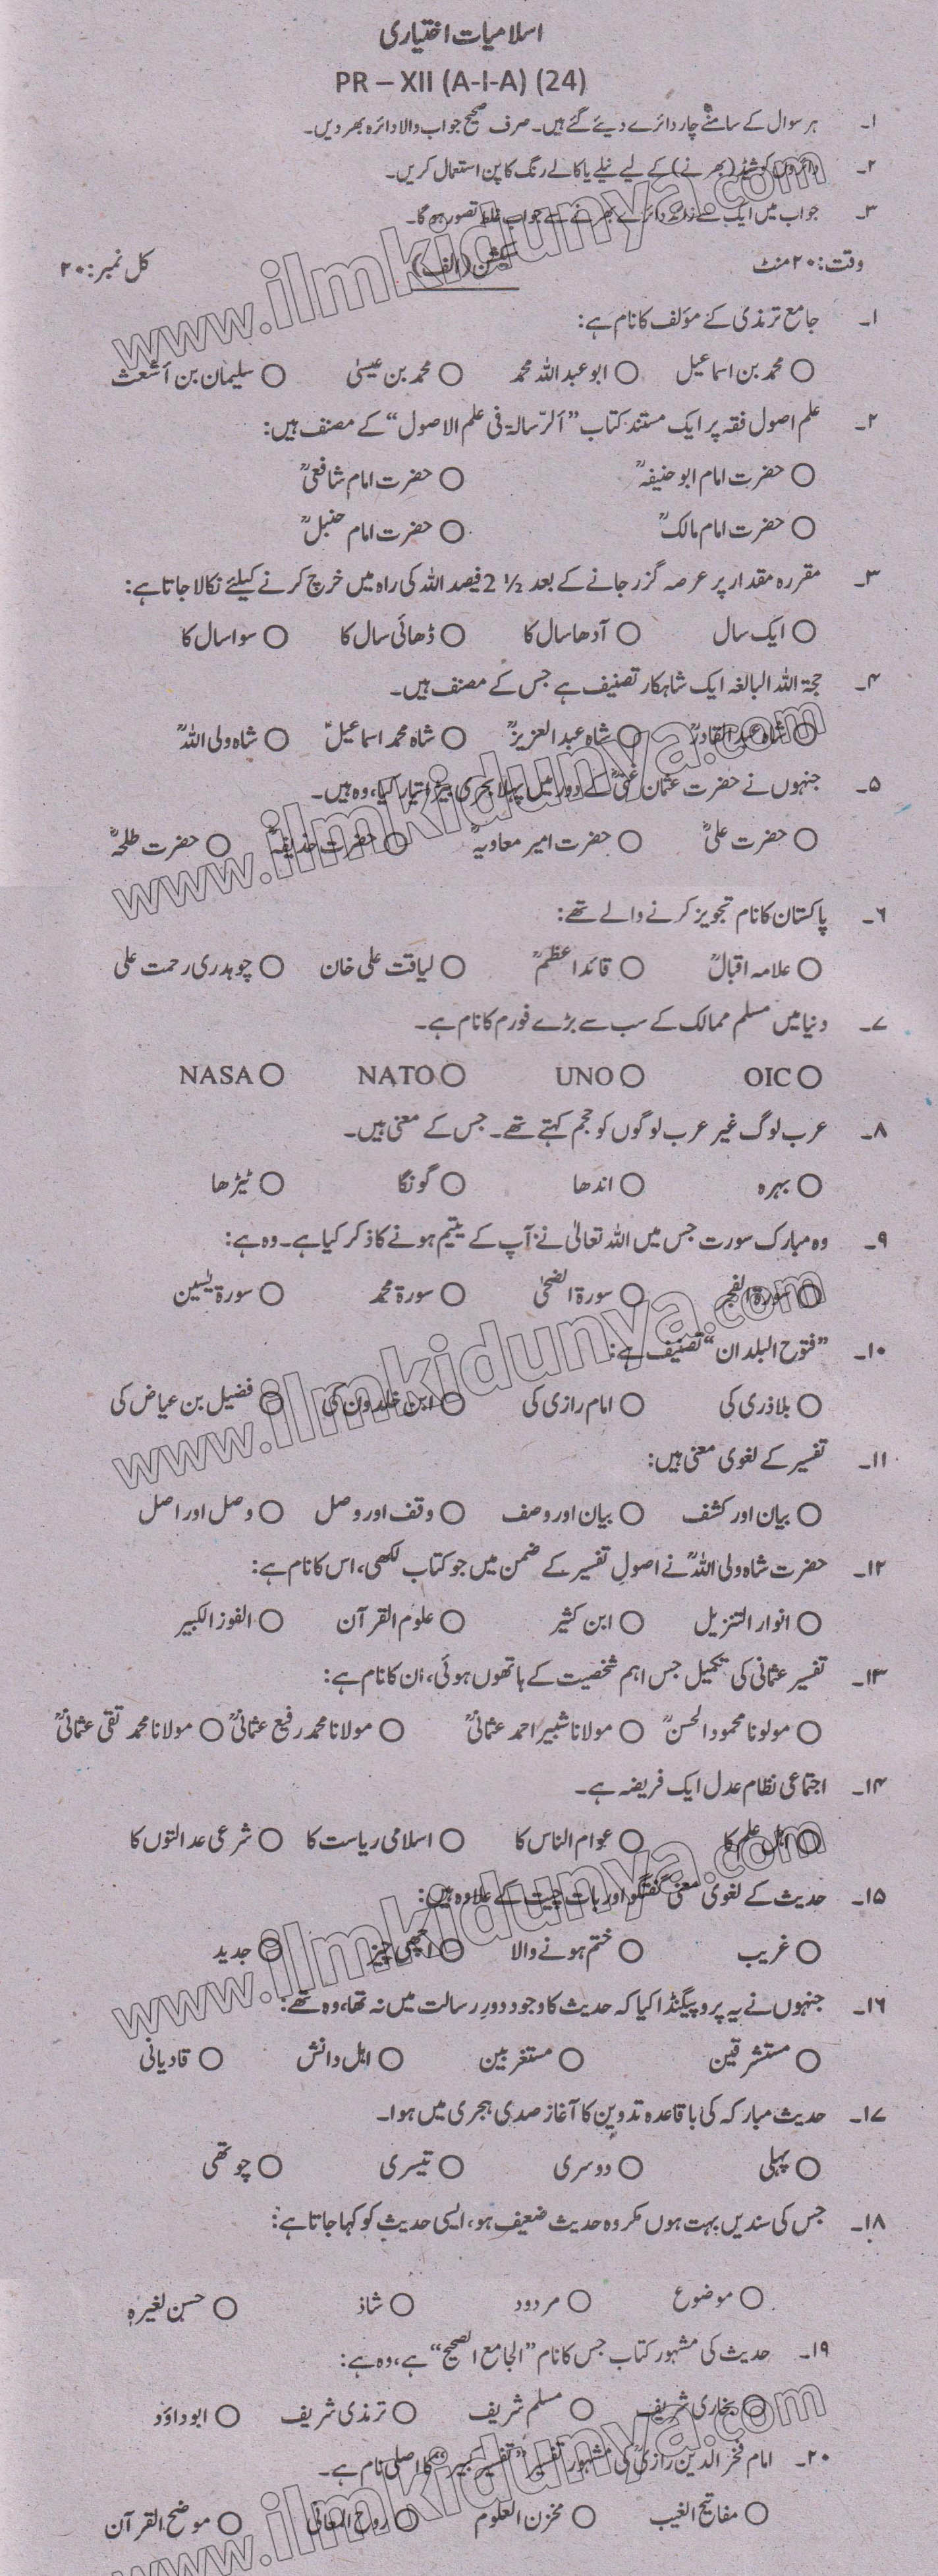 اسلامیات اختیاری
PR – XII (A-I-A) (24)
۱۔ ہر سوال کے سامنے چار دائرے دیئے گئے ہیں۔ صرف صحیح جواب والا دائرہ بھر دیں۔
۲۔ دائروں کو شیڈ (بھرنے) کے لیے نیلے یا کالے رنگ کا پن استعمال کریں۔
۳۔ جواب میں ایک سے زائد دائرے بھرنے سے جواب غلط تصور ہو گا۔
وقت: ۲۰ منٹ سیکشن (الف) کل نمبر: ۲۰
۱۔ جامع ترمذی کے مؤلف کا نام ہے:
○ محمد بن اسماعیل ○ ابو عبداللہ محمد ○ محمد بن عیسیٰ ○ سلیمان بن اَشعث
۲۔ علم اصول فقہ پر ایک مستند کتاب ”اَلرِّسالۃ فی علم الاصول“ کے مصنف ہیں:
○ حضرت امام ابو حنیفہؒ ○ حضرت امام شافعیؒ
○ حضرت امام مالکؒ ○ حضرت امام حنبلؒ
۳۔ مقررہ مقدار پر عرصہ گزر جانے کے بعد 2 ½ فیصد اللہ کی راہ میں خرچ کرنے کیلئے نکالا جاتا ہے:
○ ایک سال ○ آدھا سال کا ○ ڈھائی سال کا ○ سوا سال کا
۴۔ حجۃ اللہ البالغہ ایک شاہکار تصنیف ہے جس کے مصنف ہیں۔
○ شاہ عبدالقادرؒ ○ شاہ عبدالعزیزؒ ○ شاہ محمد اسماعیلؒ ○ شاہ ولی اللہؒ
۵۔ جنہوں نے حضرت عثمان غنیؓ کے دور میں پہلا بحری بیڑہ تیار کیا، وہ ہیں۔
○ حضرت علیؓ ○ حضرت امیر معاویہؓ ○ حضرت حذیفہؓ ○ حضرت طلحہؓ
۶۔ پاکستان کا نام تجویز کرنے والے تھے:
○ علامہ اقبالؒ ○ قائد اعظمؒ ○ لیاقت علی خان ○ چوہدری رحمت علی
۷۔ دنیا میں مسلم ممالک کے سب سے بڑے فورم کا نام ہے۔
○ OIC ○ UNO ○ NATO ○ NASA
۸۔ عرب لوگ غیر عرب لوگوں کو عجم کہتے تھے۔ جس کے معنی ہیں۔
○ بہرہ ○ اندھا ○ گونگا ○ ٹیڑھا
۹۔ وہ مبارک سورت جس میں اللہ تعالیٰ نے آپ کے یتیم ہونے کا ذکر کیا ہے۔ وہ ہے:
○ سورۃ الفجر ○ سورۃ الضحیٰ ○ سورۃ محمد ○ سورۃ یٰسین
۱۰۔ ”فتوح البلدان“ تصنیف ہے:
○ بلاذری کی ○ امام رازی کی ○ ابن خلدون کی ○ فضیل بن عیاض کی
۱۱۔ تفسیر کے لغوی معنی ہیں:
○ بیان اور کشف ○ بیان اور وصف ○ وقف اور وصل ○ وصل اور اصل
۱۲۔ حضرت شاہ ولی اللہؒ نے اصولِ تفسیر کے ضمن میں جو کتاب لکھی، اس کا نام ہے:
○ انوار التنزیل ○ ابن کثیر ○ علوم القرآن ○ الفوز الکبیر
۱۳۔ تفسیر عثمانی کی تکمیل جس اہم شخصیت کے ہاتھوں ہوئی، اُن کا نام ہے:
○ مولونا محمود الحسنؒ ○ مولانا شبیر احمد عثمانیؒ ○ مولانا محمد رفیع عثمانیؒ ○ مولانا محمد تقی عثمانیؒ
۱۴۔ اجتماعی نظام عدل ایک فریضہ ہے۔
○ اہل علم کا ○ عوام الناس کا ○ اسلامی ریاست کا ○ شرعی عدالتوں کا
۱۵۔ حدیث کے لغوی معنی گفتگو اور بات چیت کے علاوہ ہیں:
○ غریب ○ ختم ہونے والا ○ اچھی چیز ○ جدید
۱۶۔ جنہوں نے یہ پروپیگنڈا کیا کہ حدیث کا وجود دورِ رسالت میں نہ تھا، وہ تھے:
○ مستشرقین ○ مستغربین ○ اہل دانش ○ قادیانی
۱۷۔ حدیث مبارکہ کی باقاعدہ تدوین کا آغاز صدی ہجری میں ہوا۔
○ پہلی ○ دوسری ○ تیسری ○ چوتھی
۱۸۔ جس کی سندیں بہت ہوں مگر وہ حدیث ضعیف ہو، ایسی حدیث کو کہا جاتا ہے:
○ موضوع ○ مردود ○ شاذ ○ حسن لغیرہٖ
۱۹۔ حدیث کی مشہور کتاب جس کا نام ”الجامع الصحیح“ ہے، وہ ہے:
○ بخاری شریف ○ مسلم شریف ○ ترمذی شریف ○ ابوداؤد
۲۰۔ امام فخر الدین رازیؒ کی مشہور تفسیر ”تفسیر کبیر“ کا اصلی نام ہے۔
○ مفاتیح الغیب ○ مخزن العلوم ○ روح المعانی ○ موضح القرآن
www.ilmkidunya.com
www.ilmkidunya.com
www.ilmkidunya.com
www.ilmkidunya.com
www.ilmkidunya.com